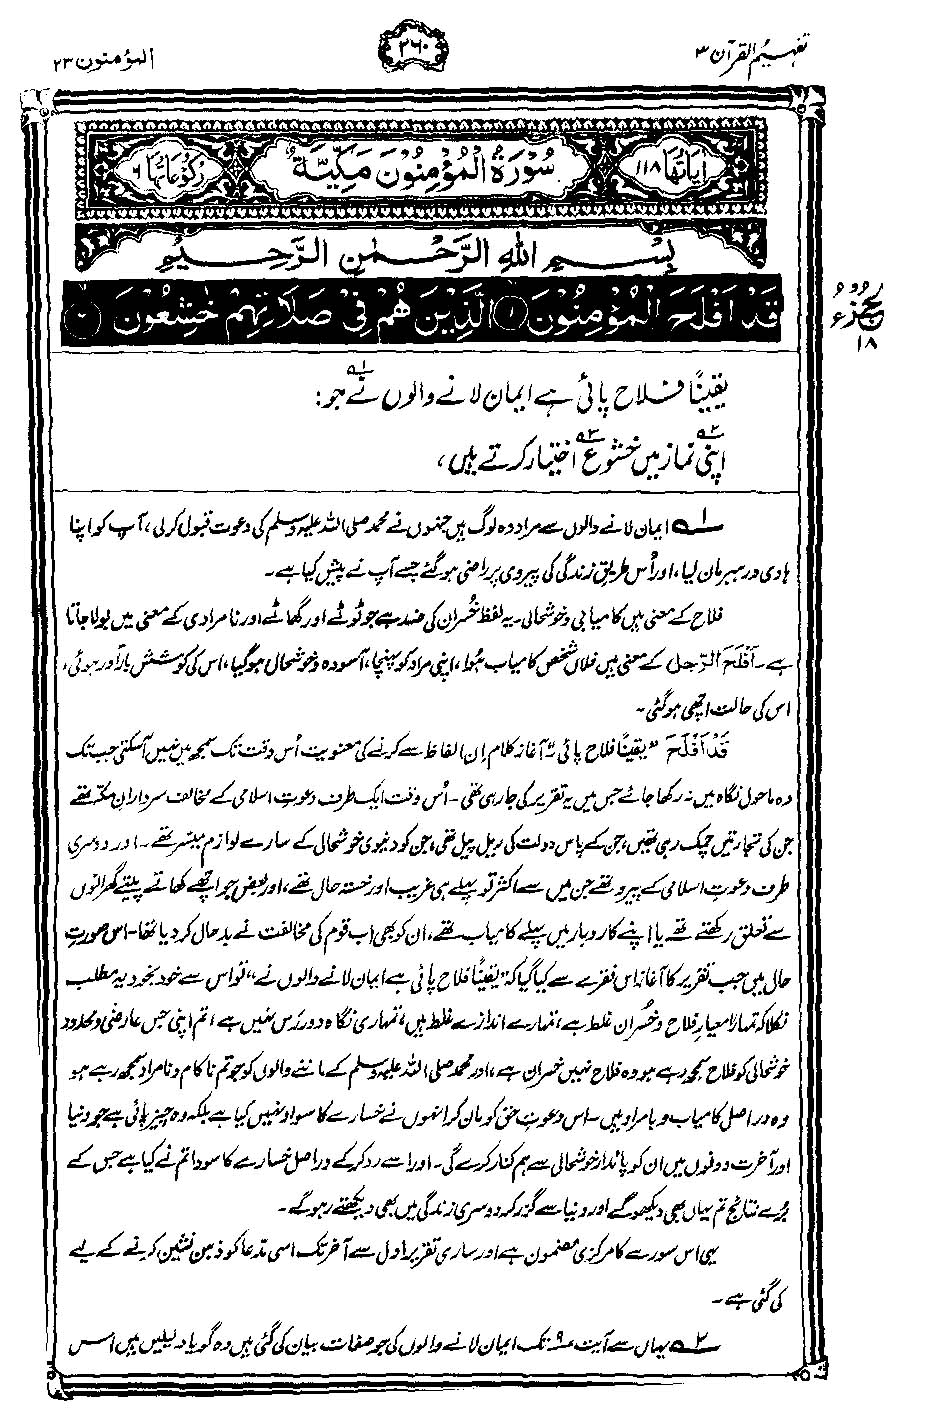 تفہیم القرآن ۳
۲۶۰
المؤمنون ۲۳
اٰیاتُهَا ۱۱۸
سُوْرَةُ الْمُؤْمِنُوْنَ مَكِّيَّةٌ
رُكُوْعَاتُهَا ۶
بِسْمِ اللهِ الرَّحْمٰنِ الرَّحِيْمِ
قَدْ اَفْلَحَ الْمُؤْمِنُوْنَ ۱ الَّذِيْنَ هُمْ فِيْ صَلَاتِهِمْ خٰشِعُوْنَ ۲
الجُزءُ
۱۸
یقینًا فلاح پائی ہے ایمان لانے والوں نے۱ جو:
اپنی۲ نماز میں خشوع۳ اختیار کرتے ہیں،
۱ ایمان لانے والوں سے مراد وہ لوگ ہیں جنہوں نے محمد صلی اللہ علیہ وسلم کی دعوت قبول کر لی، آپ کو اپنا
ہادی و رہبر مان لیا، اور اُس طریقِ زندگی کی پیروی پر راضی ہو گئے جسے آپ نے پیش کیا ہے۔
فلاح کے معنی ہیں کامیابی و خوشحالی۔ یہ لفظ خُسران کی ضد ہے جو ٹوٹے اور گھاٹے اور نامرادی کے معنی میں بولا جاتا
ہے۔ اَفْلَحَ الرّجل کے معنی ہیں فلاں شخص کامیاب ہُوا، اپنی مراد کو پہنچا، آسودہ و خوشحال ہو گیا، اس کی کوشش بارآور ہوئی،
اس کی حالت اچھی ہو گئی۔
قَدْ اَفْلَحَ ”یقینًا فلاح پائی“ آغازِ کلام اِن الفاظ سے کرنے کی معنویت اُس وقت تک سمجھ میں نہیں آسکتی جب تک
وہ ماحول نگاہ میں نہ رکھا جائے جس میں یہ تقریر کی جا رہی تھی۔ اُس وقت ایک طرف دعوتِ اسلامی کے مخالف سردارانِ مکہ تھے
جن کی تجارتیں چمک رہی تھیں، جن کے پاس دولت کی ریل پیل تھی، جن کو دنیوی خوشحالی کے سارے لوازم میسّر تھے۔ اور دوسری
طرف دعوتِ اسلامی کے پیرو تھے جن میں سے اکثر تو پہلے ہی غریب اور خستہ حال تھے، اور بعض جو اچھے کھاتے پیتے گھرانوں
سے تعلق رکھتے تھے یا اپنے کاروبار میں پہلے کامیاب تھے، ان کو بھی اب قوم کی مخالفت نے بدحال کر دیا تھا۔ اس صورتِ
حال میں جب تقریر کا آغاز اس فقرے سے کیا گیا کہ ”یقینًا فلاح پائی ہے ایمان لانے والوں نے“ تو اس سے خود بخود یہ مطلب
نکلا کہ تمہارا معیارِ فلاح و خُسران غلط ہے، تمہارے اندازے غلط ہیں، تمہاری نگاہ دور رس نہیں ہے، تم اپنی جس عارضی و محدود
خوشحالی کو فلاح سمجھ رہے ہو وہ فلاح نہیں خسران ہے، اور محمد صلی اللہ علیہ وسلم کے ماننے والوں کو جو تم ناکام و نامراد سمجھ رہے ہو
وہ دراصل کامیاب و بامراد ہیں۔ اس دعوتِ حق کو مان کر انہوں نے خسارے کا سودا نہیں کیا ہے بلکہ وہ چیز پائی ہے جو دنیا
اور آخرت دونوں میں ان کو پائدار خوشحالی سے ہم کنار کرے گی۔ اور اسے رد کر کے دراصل خسارے کا سودا تم نے کیا ہے جس کے
بُرے نتائج تم یہاں بھی دیکھو گے اور دنیا سے گزر کر دوسری زندگی میں بھی دیکھتے رہو گے۔
یہی اس سورے کا مرکزی مضمون ہے اور ساری تقریر اول سے آخر تک اسی مدعا کو ذہن نشین کرنے کے لیے
کی گئی ہے۔
۲ یہاں سے آیت ۹ تک ایمان لانے والوں کی جو صفات بیان کی گئی ہیں وہ گویا دلیلیں ہیں اس